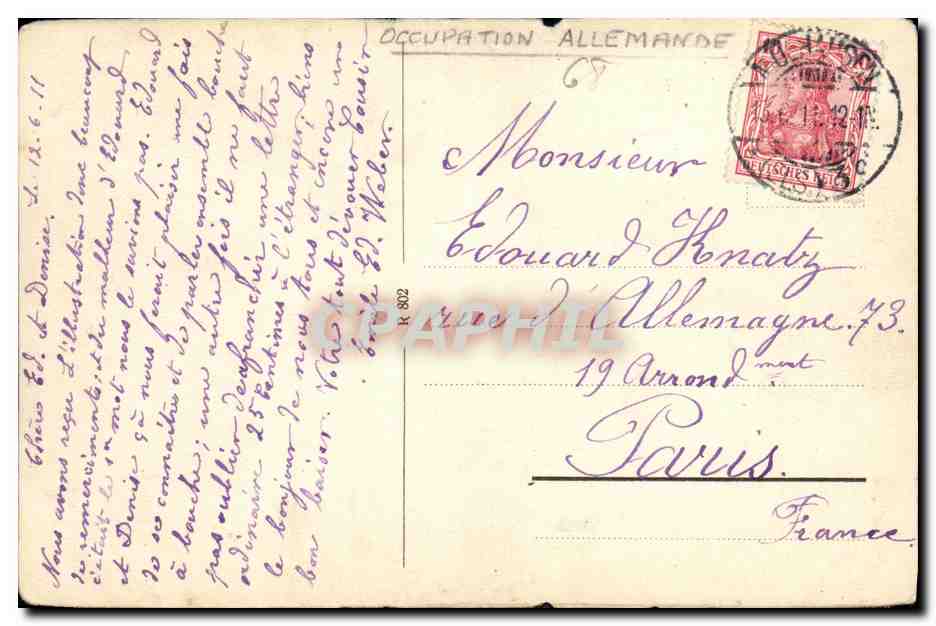 OCCUPATION ALLEMANDE
68
DEUTSCHES REICH
Monsieur
Edouard Knatz
rue d'Allemagne. 73.
19 Arrond.ment
Paris.
France.
R 802
CPAPHIL
Le 12.6.11
Chère Ed. et Denise.
Nous avons reçu L'illustration, une beaucoup
de remerciments, et du malheur d'Edouard
c'était le mot nous le suvins pas. Edouard
et Denise ça nous feroit plaisir une fois
de se connaître et de parler ensemble bouche
à bouche; une autre fois il ne faut
pas oublier de franchir une lettre
ordinaire 25 centimes à l'étranger, bins
le bonjour de nous tous et encore un
bon baiser. Votre tout dévouer Cousin
Emile Ed. Weber.